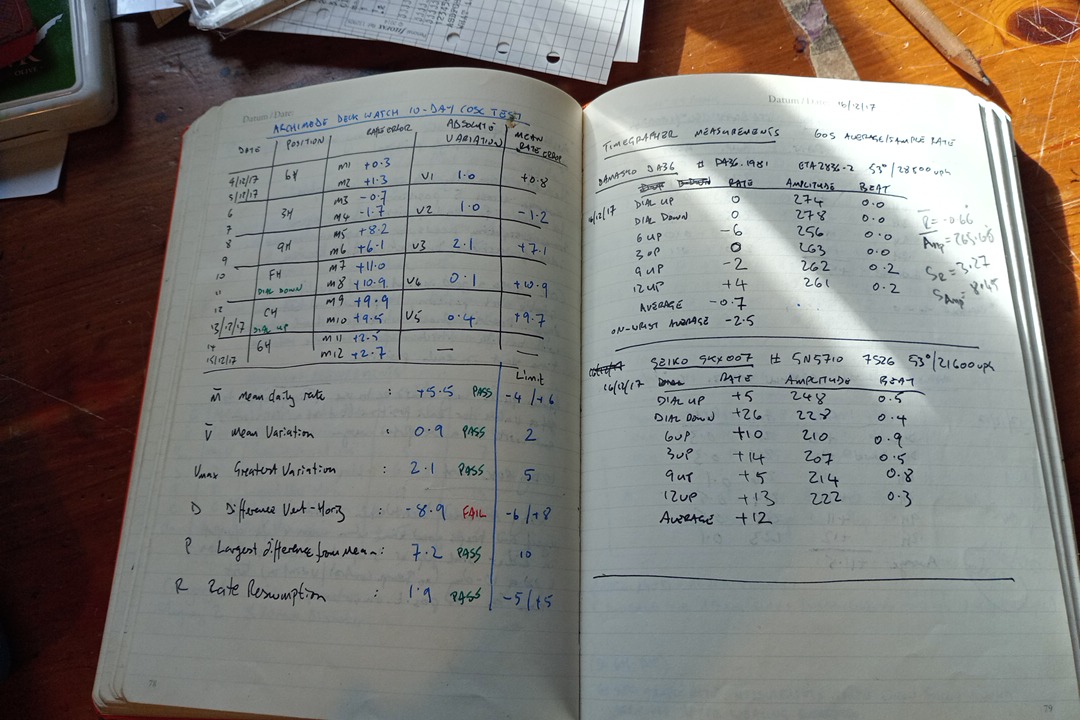 Datum / Date
ARCHIMEDE DECK WATCH 10-DAY COSC TEST
DATE POSITION RATE ERROR ABSOLUTE VARIATION MEAN RATE ERROR
4/12/17 6H m1 +0.3
5/12/17 m2 +1.3 V1 1.0 +0.8
6 3H m3 -0.7
7 m4 -1.7 V2 1.0 -1.2
8 9H m5 +8.2
9 m6 +6.1 V3 2.1 +7.1
10 FH m7 +11.0
11 DIAL DOWN m8 +10.9 V4 0.1 +10.9
12 CH m9 +9.9
13/12/17 DIAL UP m10 +9.5 V5 0.4 +9.7
14 6H m11 +2.5
15/12/17 m12 +2.7 — —
Limit
m̄ mean daily rate : +5.5 PASS -4/+6
v̄ mean Variation : 0.9 PASS 2
Vmax Greatest Variation : 2.1 PASS 5
D Difference Vert-Horiz : -8.9 FAIL -6/+8
P Largest difference from mean : 7.2 PASS 10
R Rate Resumption : 1.9 PASS -5/+5
78
Datum / Date 16/12/17
TIMEGRAPHER MEASUREMENTS 60S AVERAGE/SAMPLE RATE
DAMASKO DA36 # DA36.1981 ETA2836-2 53°/28500 vph
RATE AMPLITUDE BEAT
16/12/17 DIAL UP 0 274 0.0
DIAL DOWN 0 278 0.0
6 UP -6 256 0.0
3 UP 0 263 0.0
9 UP -2 262 0.2
12 UP +4 261 0.2
AVERAGE -0.7
ON-WRIST AVERAGE -2.5
R̄ = -0.66
SR = 3.27
SAmp = 8.45
SEIKO SKX007 # SN5710 7S26 53°/21600 vph
16/12/17 RATE AMPLITUDE BEAT
DIAL UP +5 248 0.5
DIAL DOWN +26 228 0.4
6UP +10 210 0.9
3UP +14 207 0.5
9UP +5 214 0.8
12UP +13 222 0.3
AVERAGE +12
79